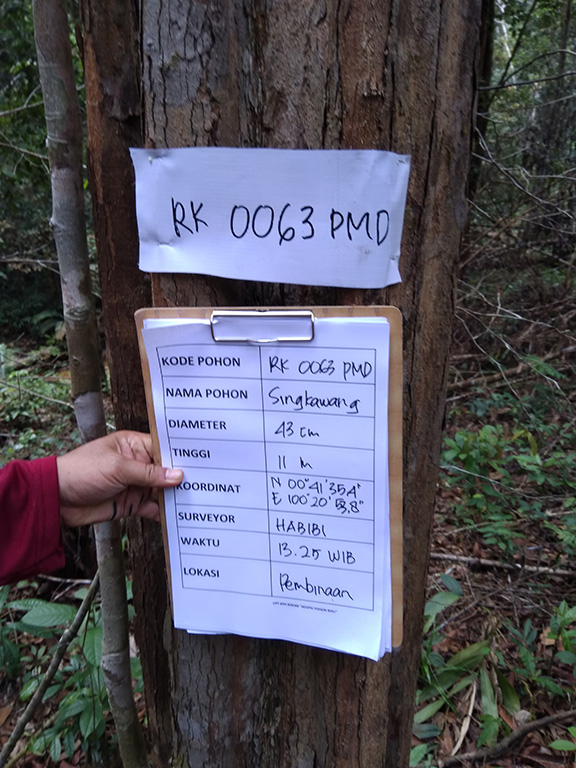 RK 0063 PMD
KODE POHON RK 0063 PMD
NAMA POHON Singkawang
DIAMETER 43 cm
TINGGI 11 m
KOORDINAT N 00°41'35,4"
E 100°20'53,8"
SURVEYOR HABIBI
WAKTU 13.25 WIB
LOKASI Pembinaan